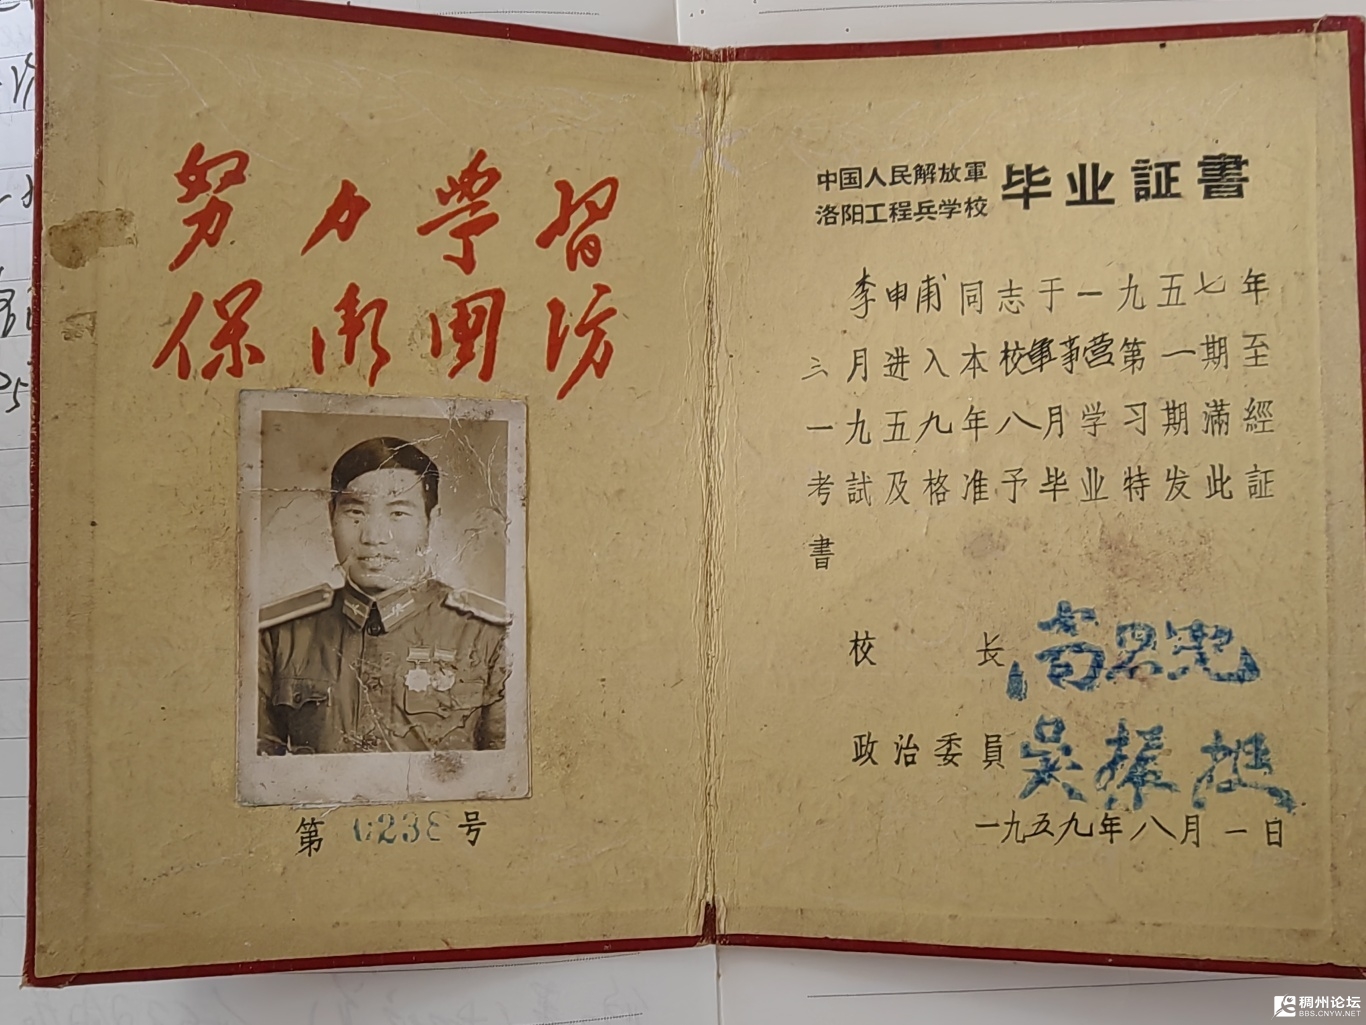 努力学習
保衛国防
第 0238 号
中国人民解放軍
洛阳工程兵学校
毕业証書
李申甫同志于一九五七年
三月进入本校軍事营第一期至
一九五九年八月学习期滿經
考試及格准予毕业特发此証
書
校长
政治委員 吳振挺
一九五九年八月一日
稠州论坛
BBS.CNYW.NET